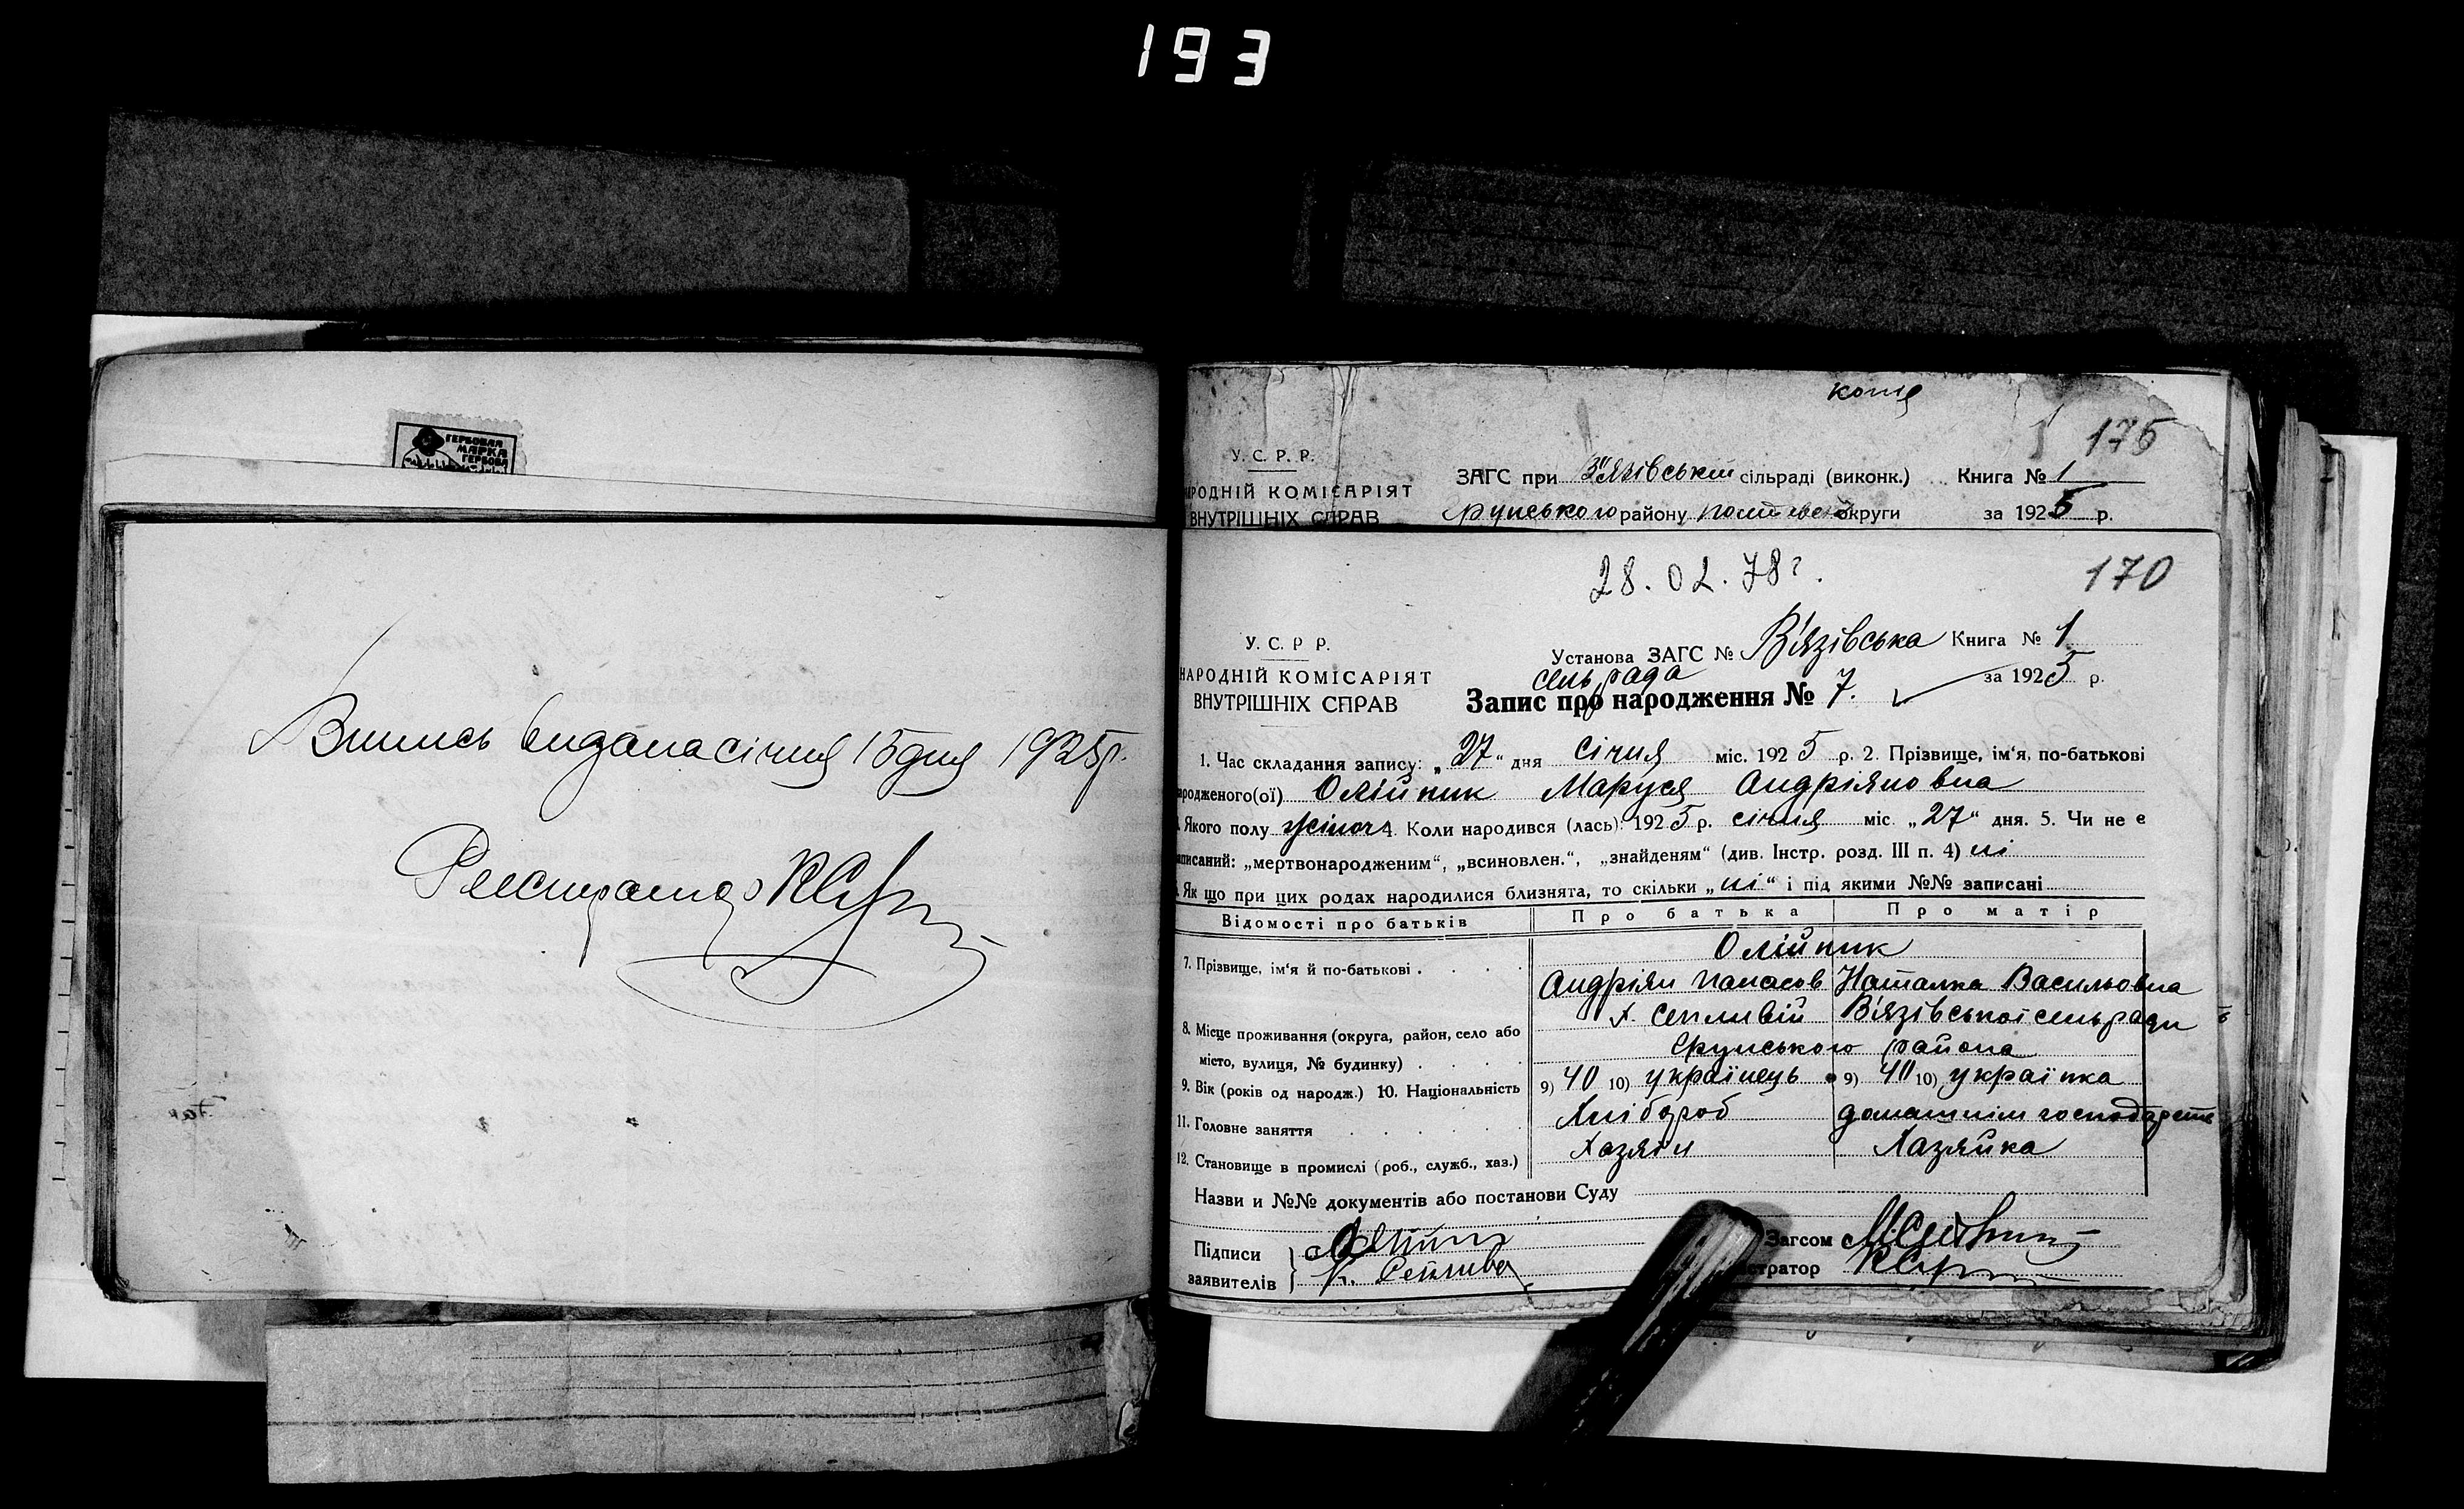 193
ГЕРБОВАЯ
МАРКА
ГЕРБОВА
Випись видана січня 15 дня 1925 р.
Реєстратор
копія
175
У. С. Р. Р.
РОДНІЙ КОМІСАРІЯТ
ВНУТРІШНІХ СПРАВ
ЗАГС при В'язівськім сільраді (виконк.) Книга № 1
Єрунського району Полтавської округи за 1925 р.
28.02.78г.
170
У. С. Р Р.
НАРОДНІЙ КОМІСАРІЯТ
ВНУТРІШНІХ СПРАВ
Установа ЗАГС № В'язівська Книга № 1
сельрада за 1925 р.
Запис про народження № 7.
1. Час складання запису: „27" дня січня міс. 1925 р. 2. Прізвище, ім'я, по-батькові
ародженого(ої) Олійник Маруся Андріяновна
Якого полу жіноч 4. Коли народився (лась): 1925 р. січня міс. „27" дня. 5. Чи не є
аписаний: „мертвонародженим", „всиновлен.", „знайденям" (див. Інстр. розд. III п. 4) ні
Як що при цих родах народилися близнята, то скільки „ні" і під якими №№ записані
Відомості про батьків Про батька Про матір
Олійник
7. Прізвище, ім'я й по-батькові . . . . Андріян Панасов Наталка Васильовна
8. Місце проживання (округа, район, село або х. Сепливій В'язівської сельради
місто, вулиця, № будинку) . . . Єрунського района
9. Вік (років од народж.) 10. Національність 9) 40 10) українець 9) 40 10) українка
11. Головне заняття . . . . . Хлібороб домашнім господарств
12. Становище в промислі (роб., служб., хаз.) Хазяїн Хазяйка
Назви и №№ документів або постанови Суду
Підписи
заявителів
Загсом
стратор